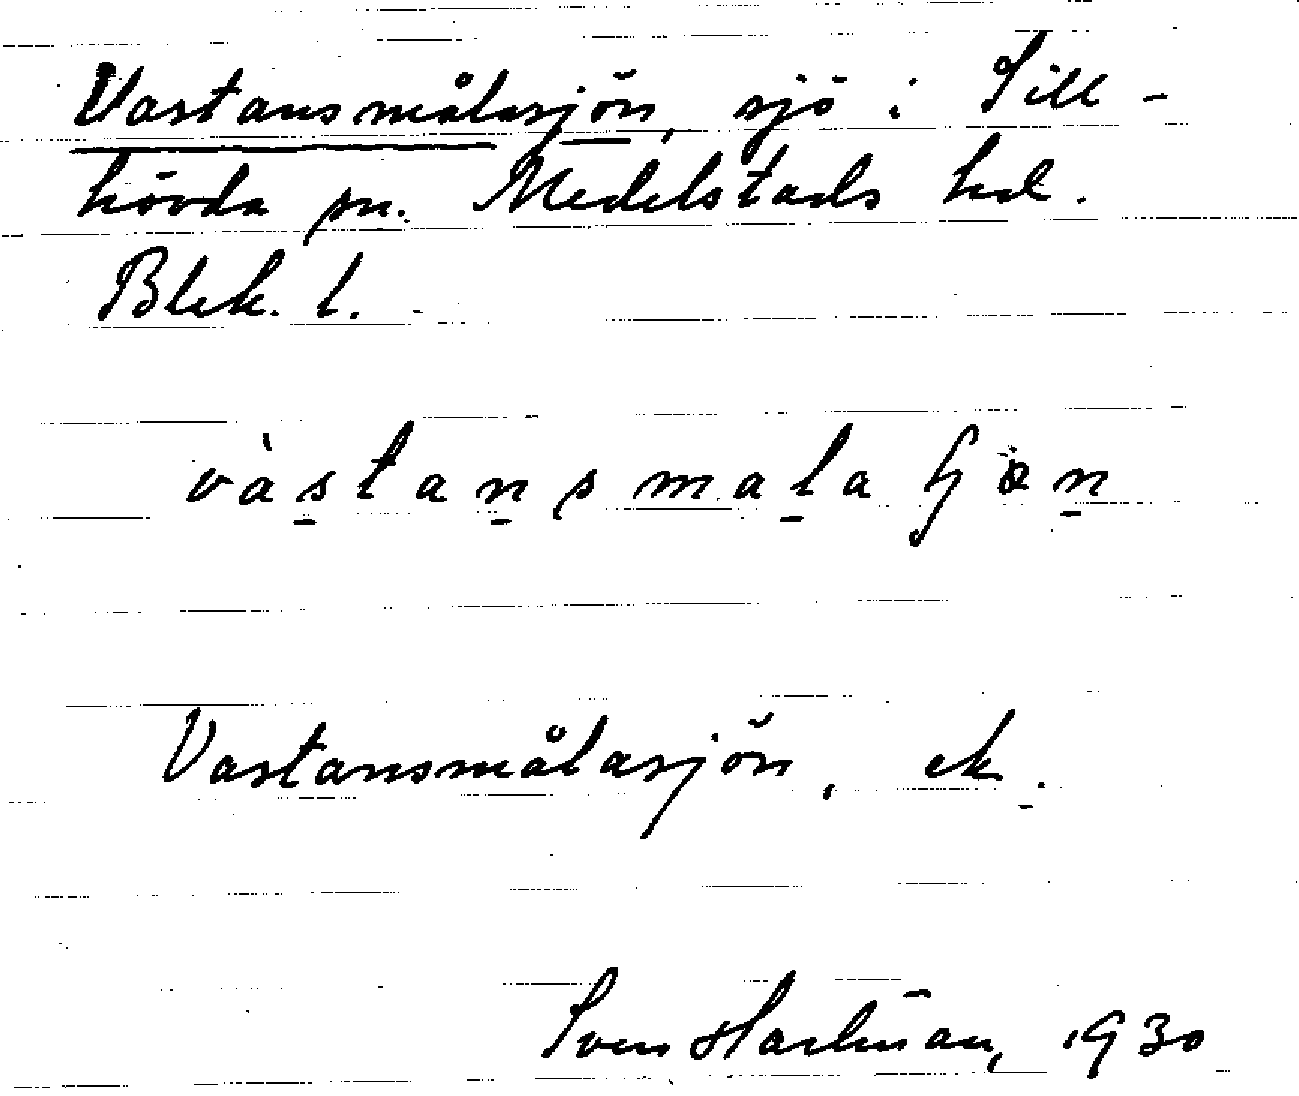 Vastansmålasjön, sjö i Sill-
hövda sn. Medelstads hd.
Blek. l.
vàstansmalaɧøn
Vastansmålasjön, ek.
Sven Hartman, 1930